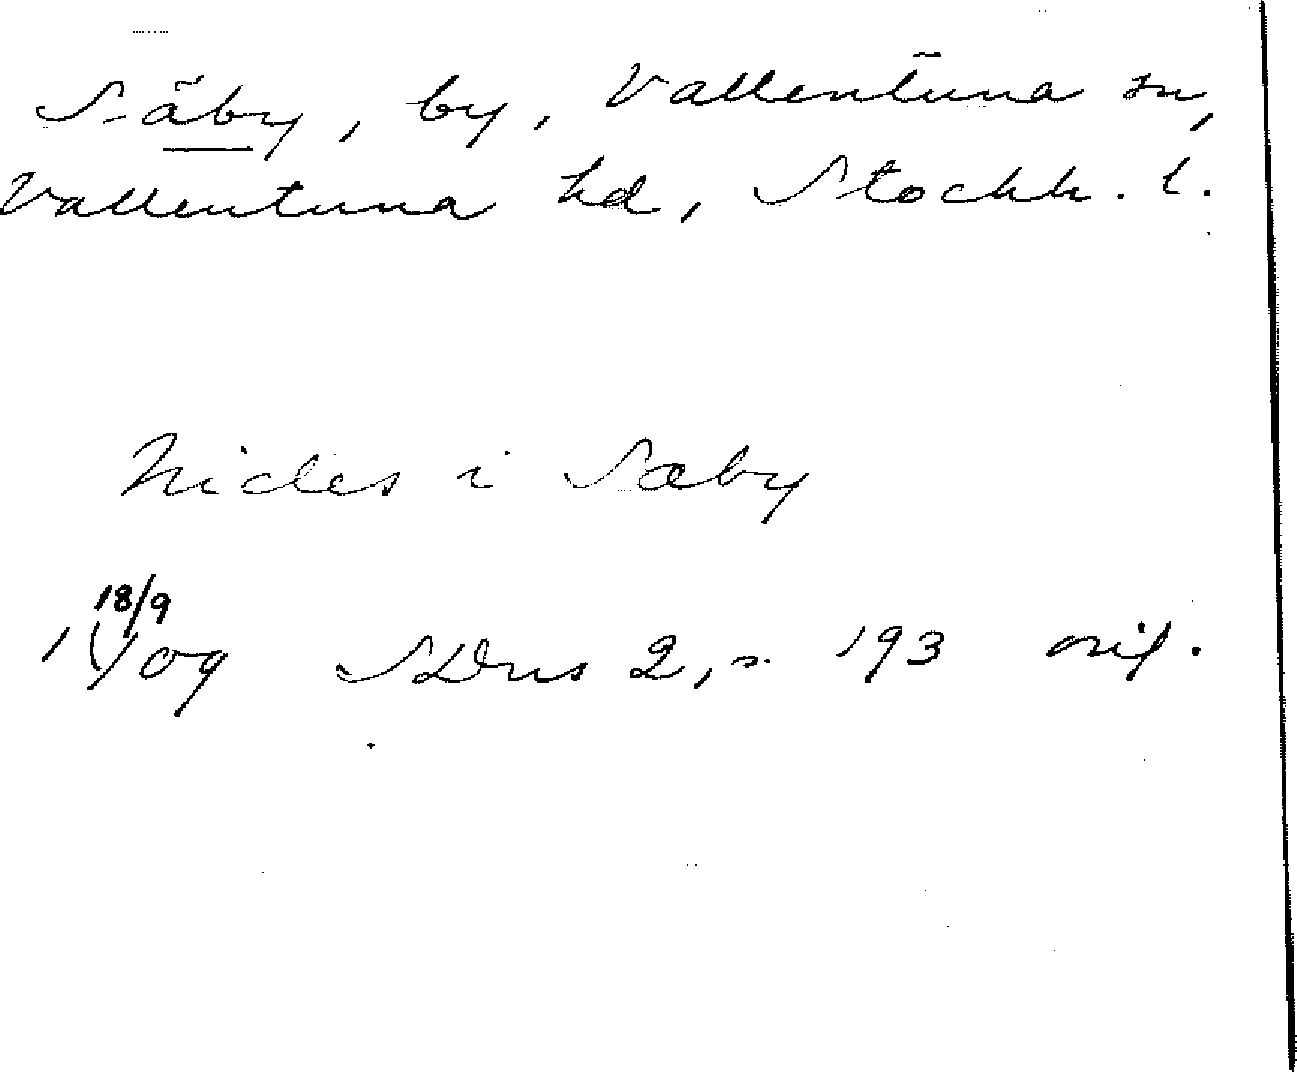 Säby, by, Vallentuna sn,
Vallentuna hd, Stockh. l.
Nicles i Sæby
18/9
1409 SDns 2, s. 193 orig.